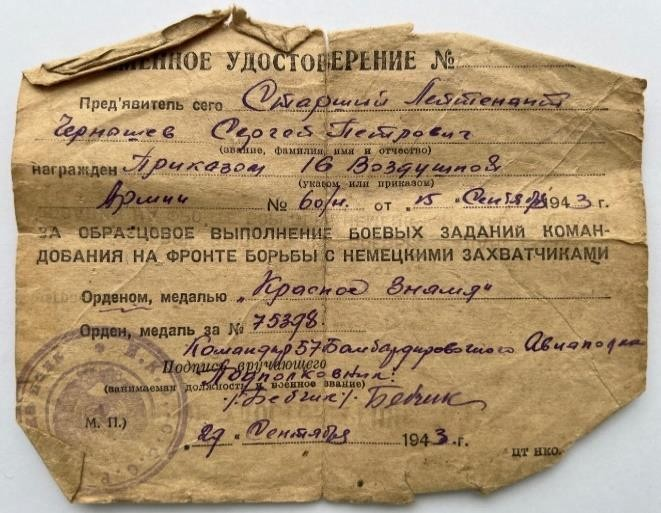 МЕННОЕ УДОСТОВЕРЕНИЕ №
Пред'явитель сего Старший Лейтенант
Чернашев Сергей Петрович
(звание, фамилия, имя и отчество)
награжден Приказом 16 Воздушной
(указом или приказом)
Армии № 60/н. от „15" Сентября 1943 г.
ЗА ОБРАЗЦОВОЕ ВЫПОЛНЕНИЕ БОЕВЫХ ЗАДАНИЙ КОМАН-
ДОВАНИЯ НА ФРОНТЕ БОРЬБЫ С НЕМЕЦКИМИ ЗАХВАТЧИКАМИ
Орденом, медалью „Красное Знамя"
Орден, медаль за № 75398.
Командир 57 Бомбардировочного Авиаполка
Подпись вручающего
Подполковник:
(занимаемая должность и военное звание)
/Бебчик/. Бебчик
М. П.)
„29" Сентября 1943 г.
ЦТ НКО.